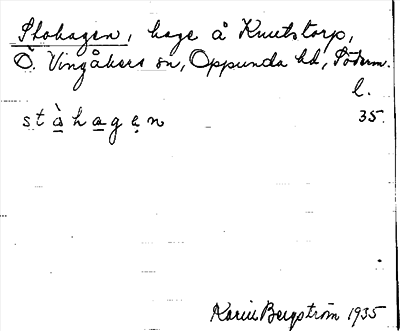 Stohagen, hage å Knutstorp,
Ö. Vingåkers sn, Oppunda hd, Söderm.
l.
stàhagen 35.
Karin Bergström 1935